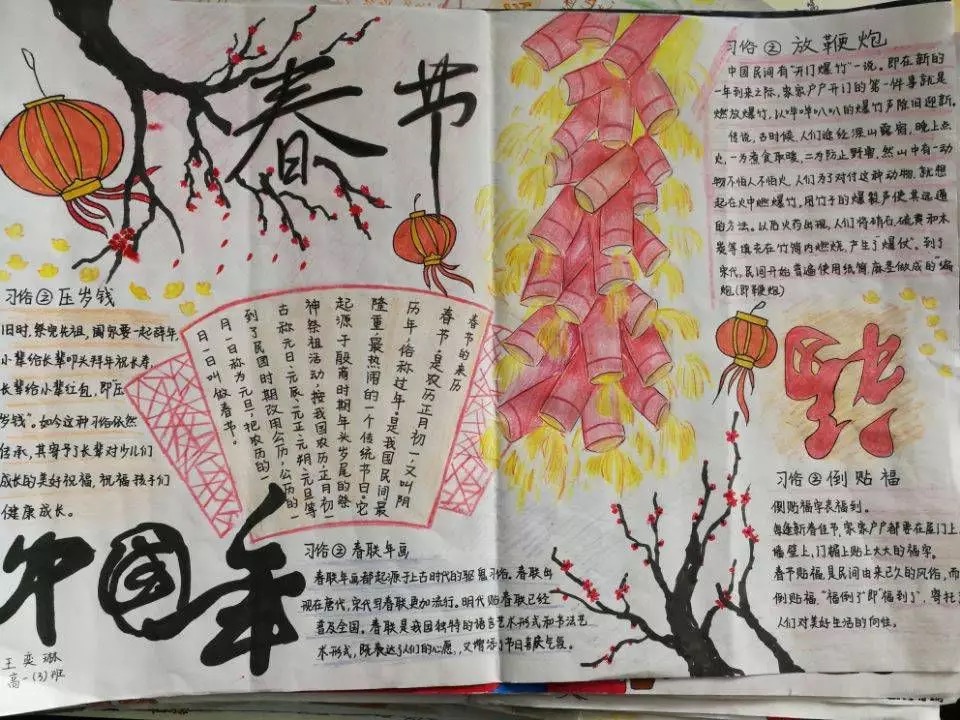 春节
习俗②压岁钱
旧时,祭完先祖,阖家要一起辞年,
小辈给长辈叩头拜年祝长寿,
长辈给小辈红包,即"压
岁钱"。如今这种习俗依然
传承,其寄予了长辈对少儿们
成长的美好祝福,祝福孩子们
健康成长。
春节的来历
春节,是农历正月初一,又叫阴
历年,俗称过年。是我国民间最
隆重最热闹的一个传统节日。它
起源于殷商时期年头岁尾的祭
神祭祖活动,按我国农历,正月初一
古称元日、元辰、元正、元朔、元旦等
到了民国时期改用公历,公历的一
月一日称为元旦,把农历的一
月一日叫做春节。
中国年
王奕琳
高一(3)班
习俗②春联年画
春联年画都起源于上古时代的驱鬼习俗。春联出
现在唐代,宋代写春联更加流行。明代贴春联已经
普及全国。春联是我国独特的语言艺术形式和书法艺
术形式,既表达了人们的心愿,又增添了节日喜庆气氛。
习俗②放鞭炮
中国民间有"开门爆竹"一说。即在新的
一年到来之际,家家户户开门的第一件事就是
燃放爆竹,以哔哔叭叭的爆竹声除旧迎新。
传说,古时候人们途经深山露宿,晚上点
火,一为煮食取暖,二为防止野兽,然山中有一动
物不怕人不怕火,人们为了对付这种动物,就想
起在火中燃爆竹,用竹子的爆裂声使其远遁
的方法。以后火药出现,人们将硝石、硫黄和木
炭等填充在竹筒内燃烧,产生了"爆仗"。到了
宋代,民间开始普遍使用纸筒麻茎做成的"编
炮(即鞭炮)
福
习俗②倒贴福
倒贴福字表福到。
每逢新春佳节,家家户户都要在屋门上
墙壁上,门楣上贴上大大的福字。
春节贴福是民间由来已久的风俗,而
倒贴福,"福倒了"即"福到了",寄托了
人们对美好生活的向往。